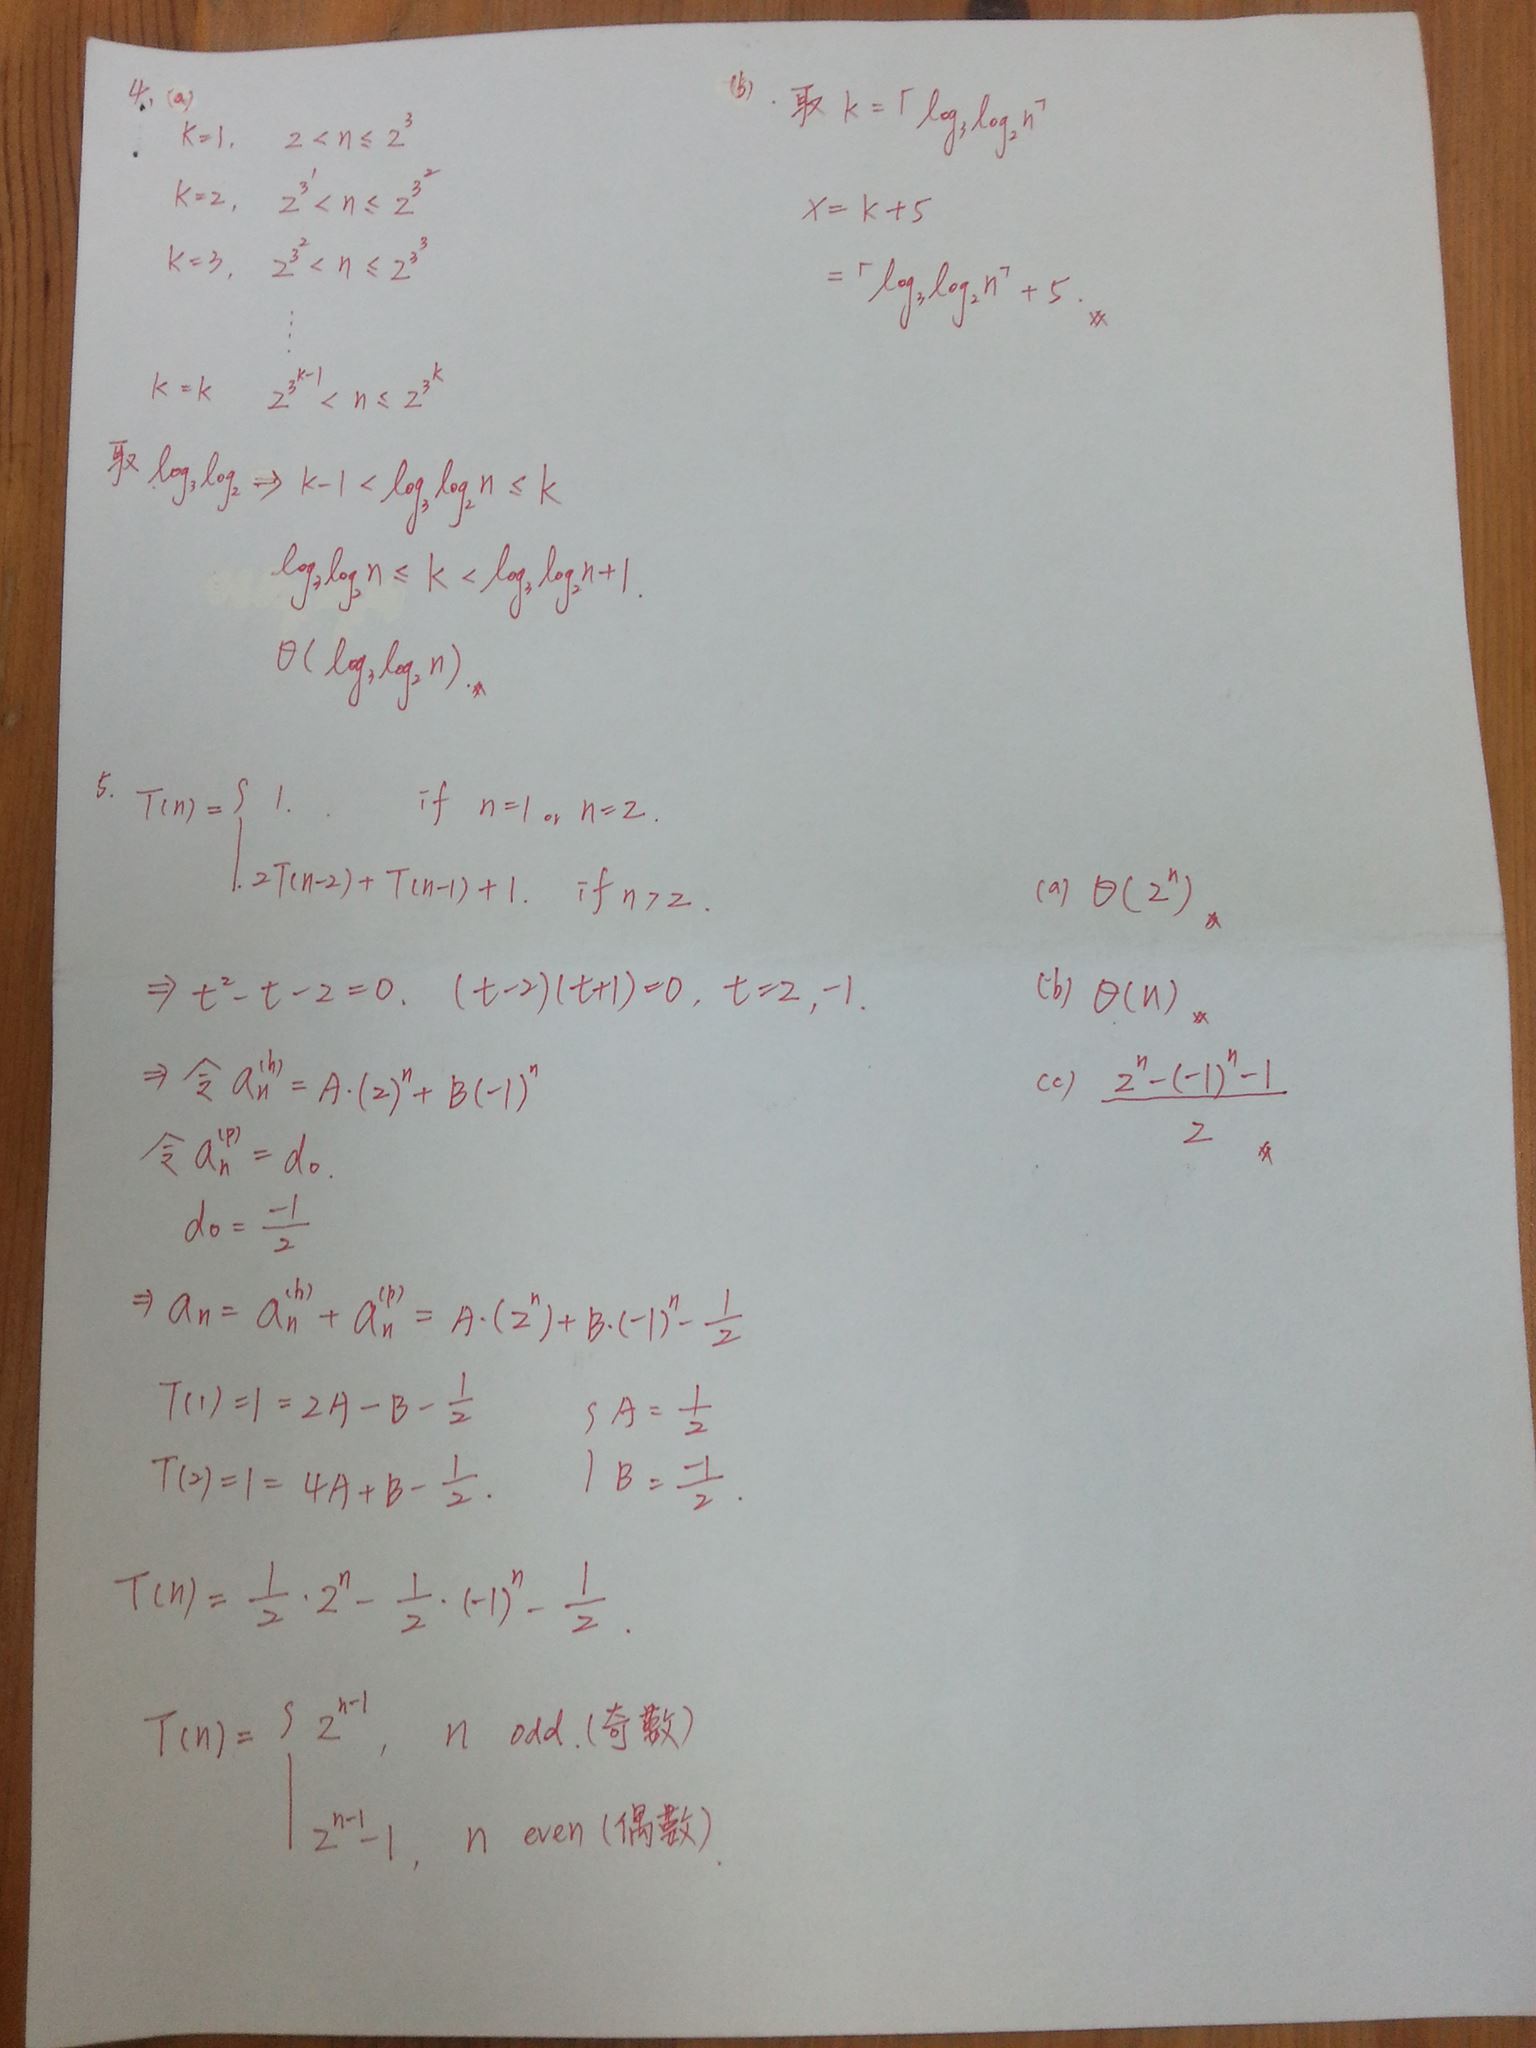 4. (a)
k=1, 2 < n ≤ 2^3
k=2, 2^{3^1} < n ≤ 2^{3^2}
k=3, 2^{3^2} < n ≤ 2^{3^3}
⋮
k=k 2^{3^{k-1}} < n ≤ 2^{3^k}
取 log₃log₂ ⇒ k-1 < log₃log₂n ≤ k
log₃log₂n ≤ k < log₃log₂n+1.
θ(log₃log₂n).
(b). 取 k=⌈log₃log₂n⌉
x = k+5
= ⌈log₃log₂n⌉ + 5.
5. T(n) = { 1. if n=1 or n=2.
2T(n-2) + T(n-1) + 1. if n>2.
⇒ t²-t-2=0. (t-2)(t+1)=0, t=2,-1.
⇒ 令 a_n^{(h)} = A·(2)^n + B(-1)^n
令 a_n^{(p)} = d₀.
d₀ = -1/2
⇒ a_n = a_n^{(h)} + a_n^{(p)} = A·(2^n) + B·(-1)^n - 1/2
T(1)=1=2A-B-1/2 { A = 1/2
T(2)=1=4A+B-1/2. B = -1/2.
T(n) = 1/2·2^n - 1/2·(-1)^n - 1/2.
T(n) = { 2^{n-1}, n odd.(奇數)
2^{n-1}-1, n even(偶數).
(a) θ(2^n)
(b) θ(n)
(c) (2^n-(-1)^n-1)/2